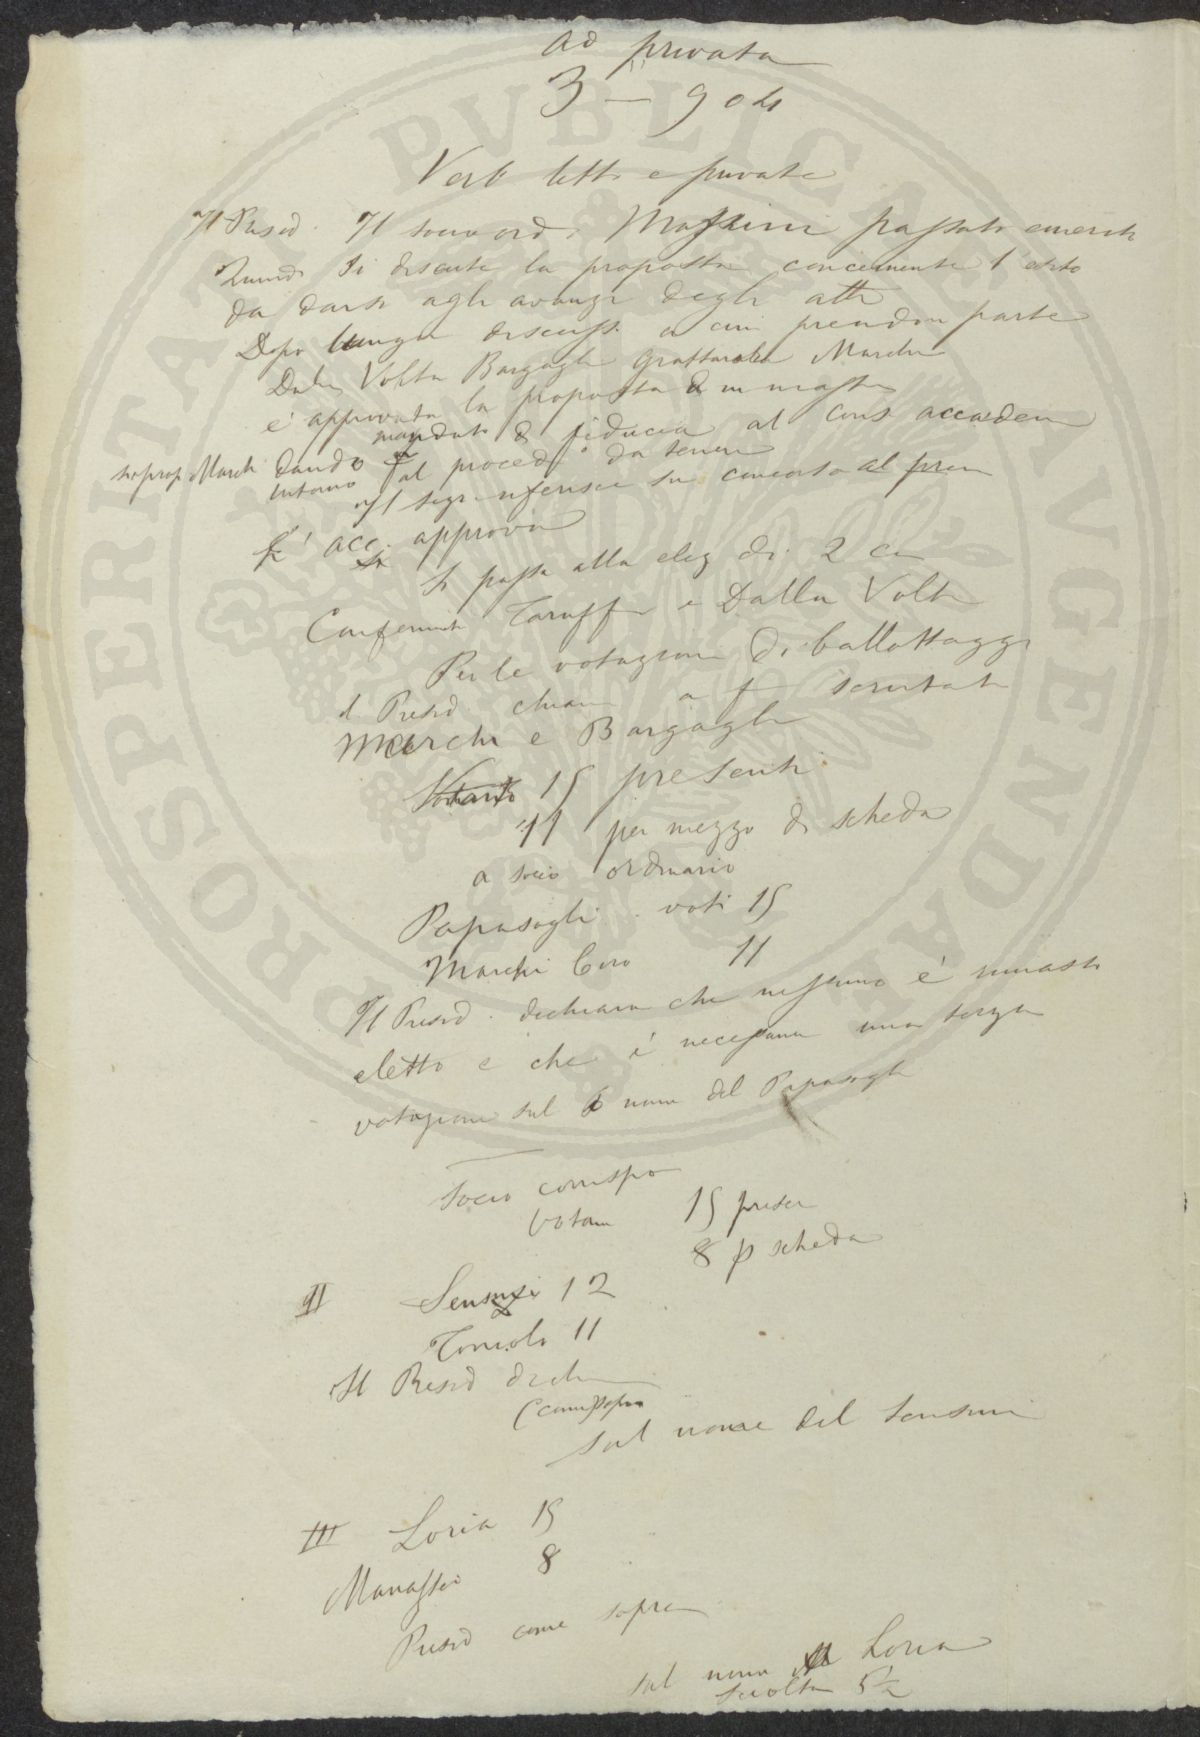 Ad privata
3 — 9
Verb letto e privata
Il Presid. Il socio ord. Massini passato emerito
Quindi si discute la proposta concernente l esito
da darsi agli avanzi degli atti
Dopo lunga discuss. a cui prendon parte
Dalla Volta Bargagli Grattarola Marchi
è approvata la proposta in massa
mandato di fiducia al Cons accadem
su prop. Marchi dando al proced° da tenere
intorno
Il segr. riferisce su concorso al prem
acc. approva
Si passa alla elez di 2
Confermati Taruffi e Dalla Volta
Per le votazioni di ballottaggi
il Presid. chiama a scrutat
Marchi e Bargagli
Votanti 15 presenti
11 per mezzo di scheda
a socio ordinario
Papasogli voti 15
Marchi Ciro 11
Il Presid. dichiara che nessuno è rimasto
eletto e che è necessaria una terza
votazione sul nome del Papasogli
Socio corrispo
Votan 15 presen
8 p scheda
II Sensini 12
Toniolo 11
Il Presid dich
(come sopra
sul nome del Sensini
III Loria 15
Manassei 8
Presid come sopra
sul nome Loria
Sciolta 5½
PROSPERITATI PVBLICAE AVGENDAE